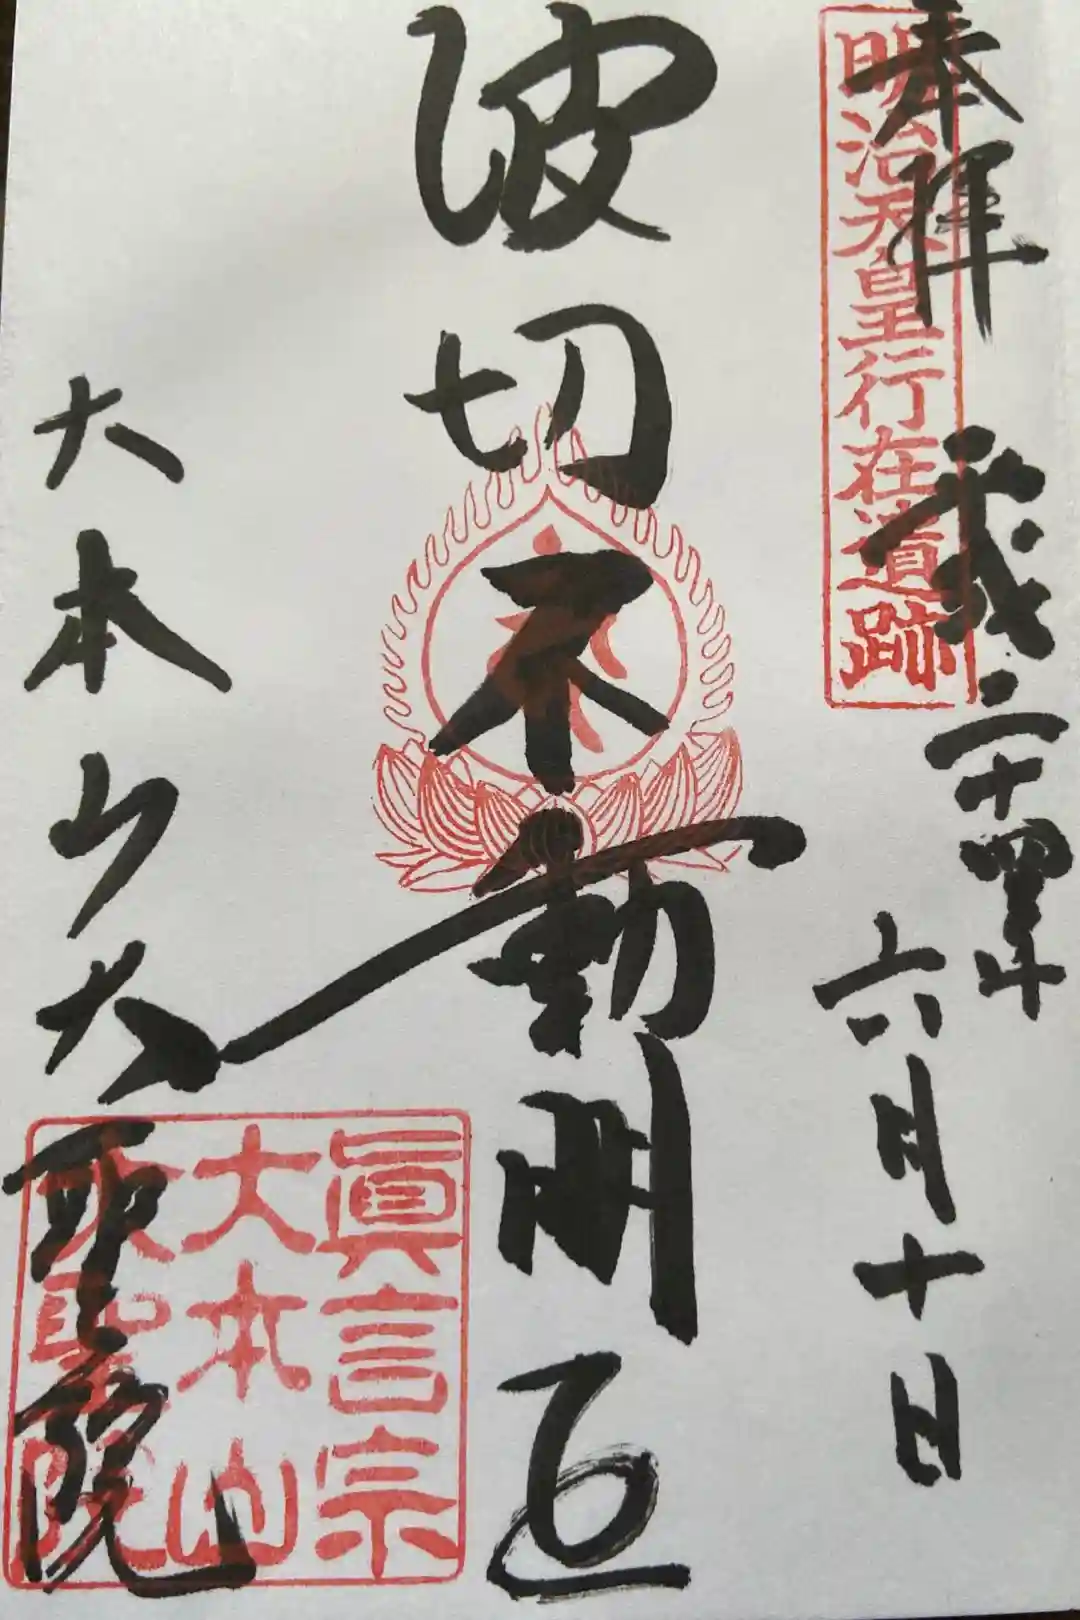 奉拝
平成二十四年
六月十日
明治天皇行在遺跡
波切不動明王
大本山大聖院
眞言宗
大本山
大聖院